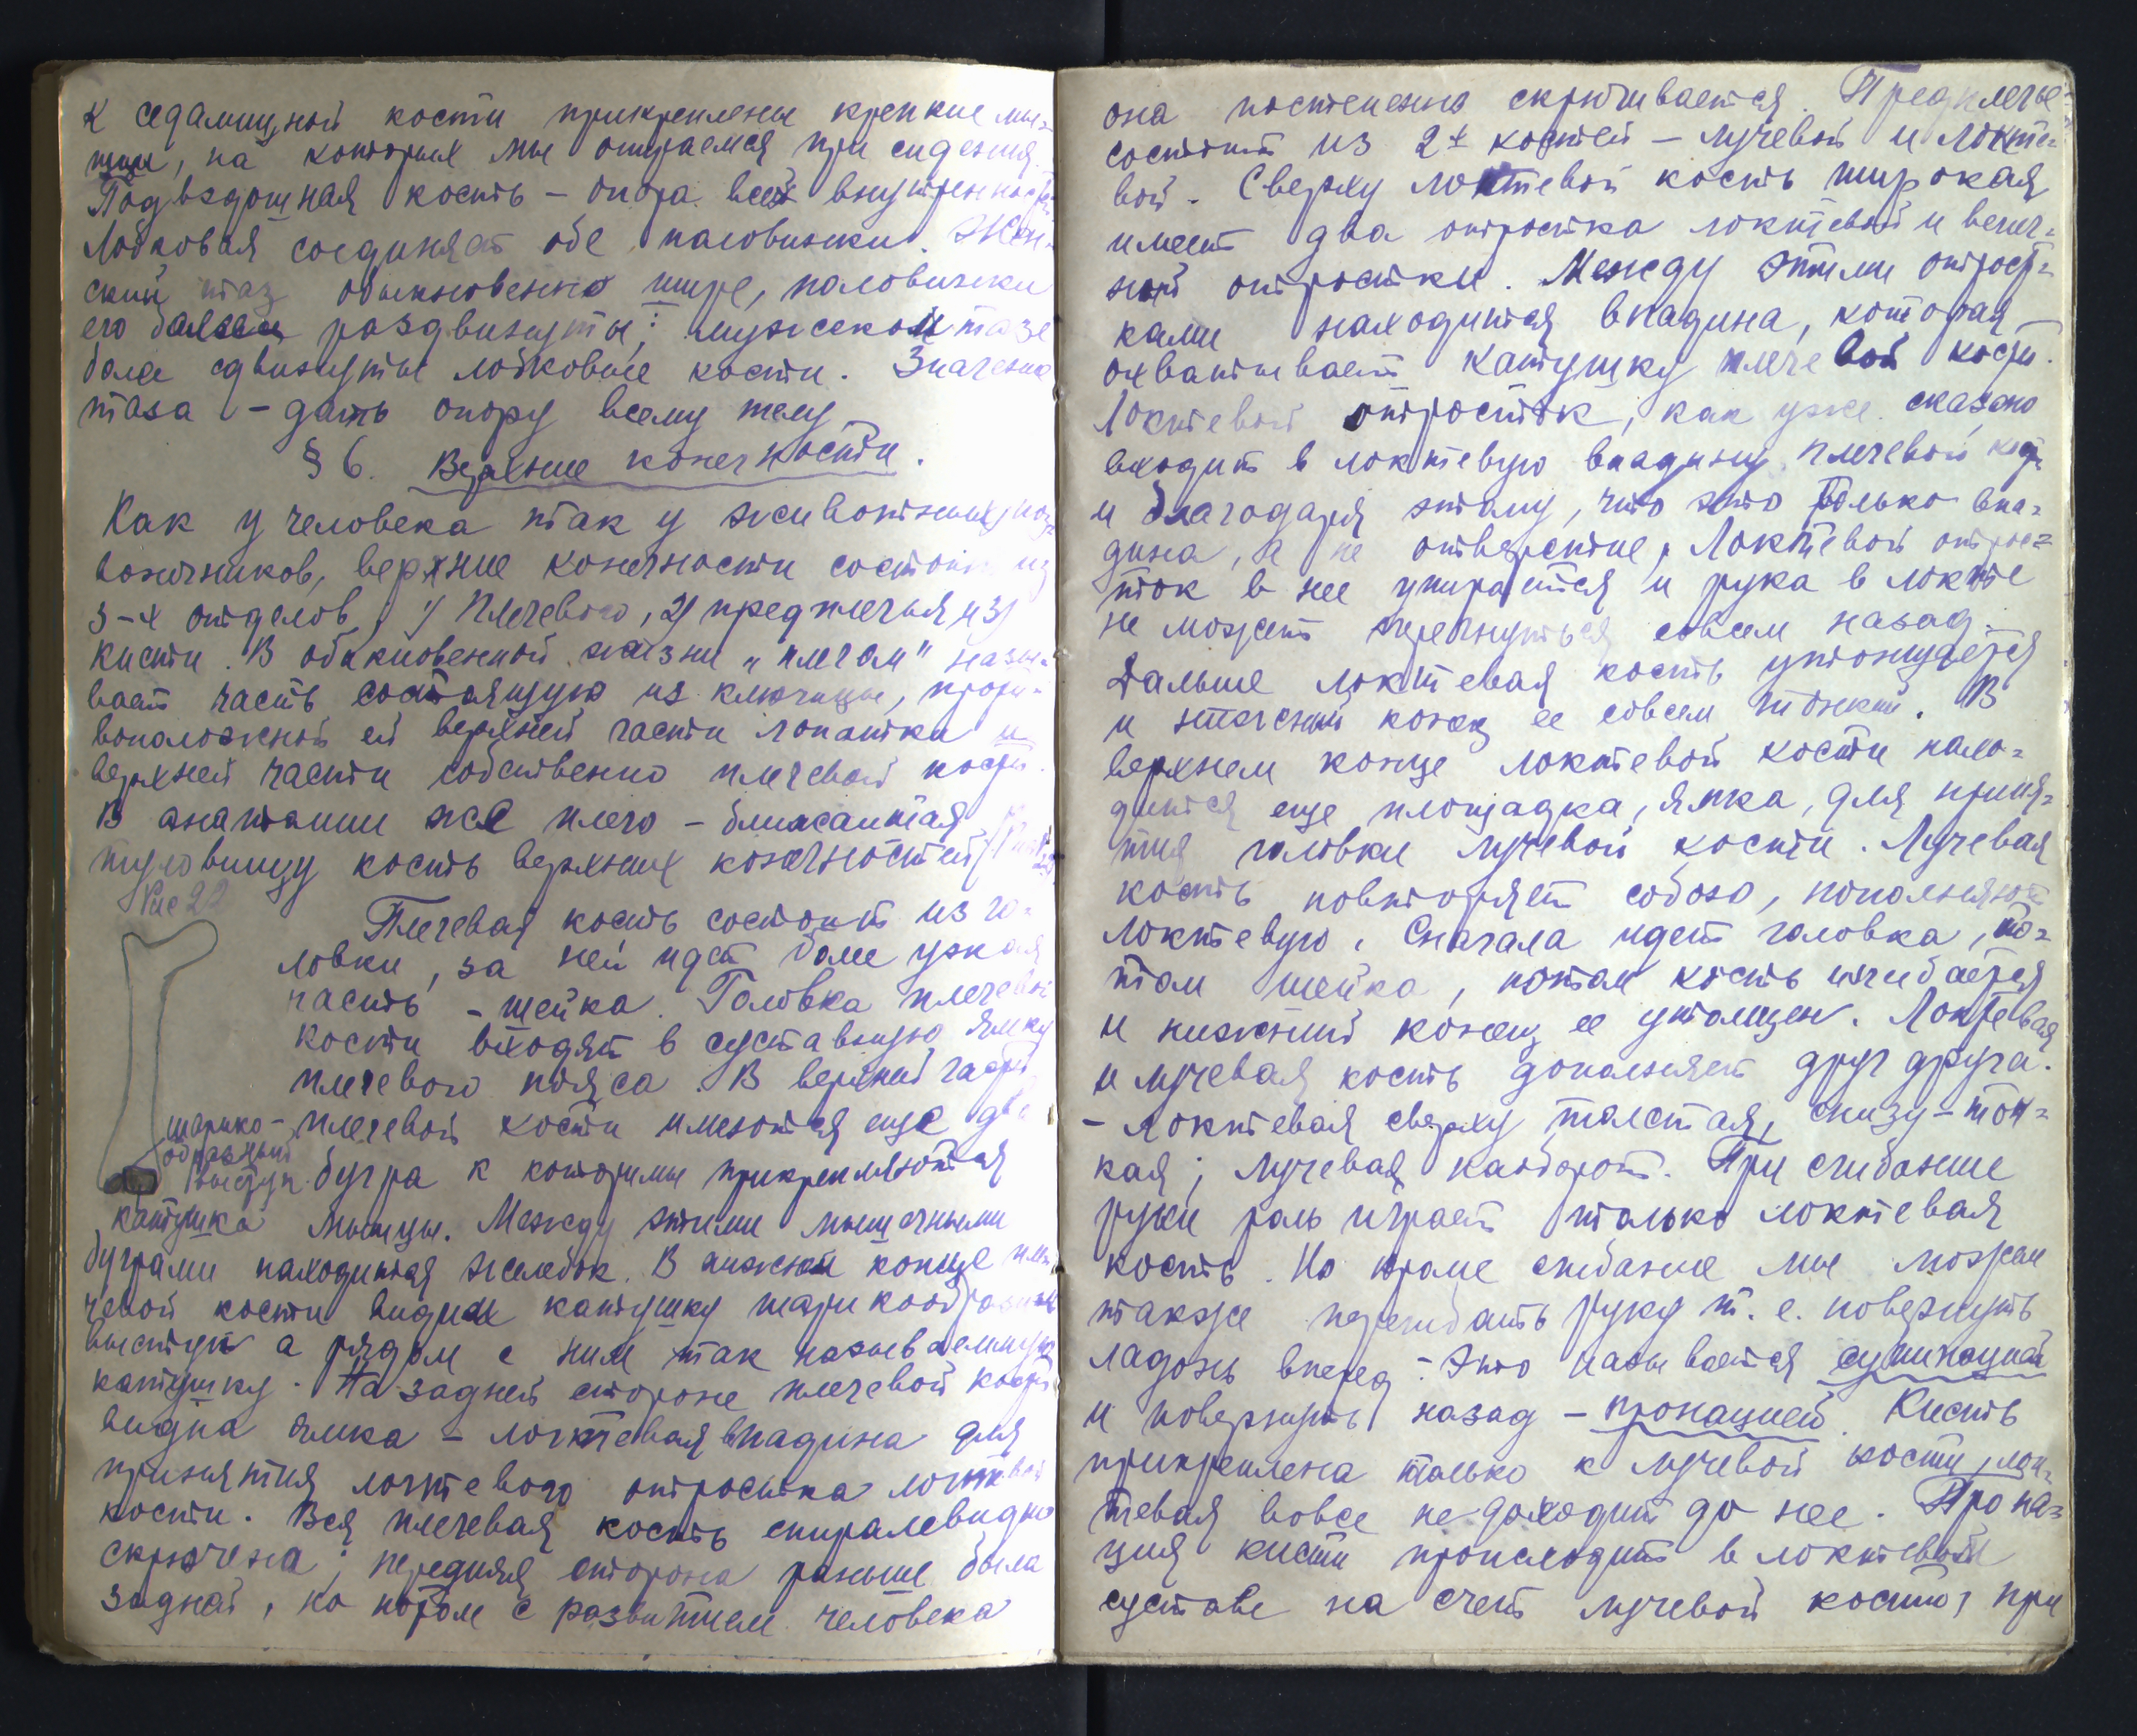 К седалищной кости прикреплены крепкие мы-
шцы, на которых мы опираемся при сидении.
Подвздошная кость – опора всех внутренностей.
Лобковая соединяет обе половинки. Жен-
ский таз обыкновенно шире, половинки
его более раздвинуты; мужском тазе
боле сдвинуты лобковые кости. Значение
таза – дать опору всему телу
§ 6. Верхние конечности.
Как у человека так у животных, поз-
воночников, верхние конечности состоят из
3-х отделов 1) Плечевого, 2) предплечья и 3)
кисти. В обыкновенной жизни „плечом" назы-
вает часть состоящую из ключицы, проти-
воположной ей верхней части лопатки и
верхней части собственно плечевой кости.
В анатомии же плечо – ближайшая
туловищу кость верхних конечностей
Рис 22
Плечевая кость состоит из го-
ловки, за ней идет боле узкая
часть – шейка. Головка плечевой
кости входят в суставную ямку
плечевого пояса. В верхней части
плечевой кости имеются еще два
шарико-
образный
выступ
бугра к которым прикрепляются
катушка
мышцы. Между этими мышечными
буграми находится желобок. В нижнем конце пле-
чевой кости видим катушку шарикообразный
выступ а рядом с ним так называемую
катушку. На задней стороне плечевой кости
видна ямка – локтевая впадина для
принятия локтевого отростка локтевой
кости. Вся плечевая кость спиралевидно
скрючена; передняя сторона раньше была
задней, но потом с развитием человека
она постепенно скрючивается. Предплечье
состоит из 2х костей – лучевой и локте-
вой. Сверху локтевой кость широкая
имеет два отростка локтевой и венеч-
ный отростки. Между этими отрост-
ками находится впадина, которая
охватывает катушку плечевой кости.
Локтевой отросток, как уже сказано
входит в локтевую впадину плечевой кости
и благодаря этому, что это только впа-
дина, а не отверстие, Локтевой отрос-
ток в нее упирается и рука в локте
не может перегнуться совсем назад.
Дальше локтевая кость утончается
и нижний конец ее совсем тонкий. В
верхнем конце локтевой кости нахо-
дится еще площадка, ямка, для приня-
тия головки лучевой кости. Лучевая
кость повторяет собою, пополняют
локтевую. Сначала идет головка, по-
том шейка, потом кость изгибается
и нижний конец ее утолщен. Локтевая
и лучевая кость дополняет друг друга.
– локтевая сверху толстая, снизу – тон-
кая; лучевая наоборот. При сгибание
руки роль играет только локтевая
кость. Но кроме сгибание мы можем
также перегибать руку т. е. повернуть
ладонь вперед – Это называется супинацией
и повернуть назад – пронацией. Кисть
прикреплена только к лучевой кости, лок-
тевая вовсе не доходит до нее. Прона-
ция кисти происходит в локтевом
суставе на счет лучевой кости, при